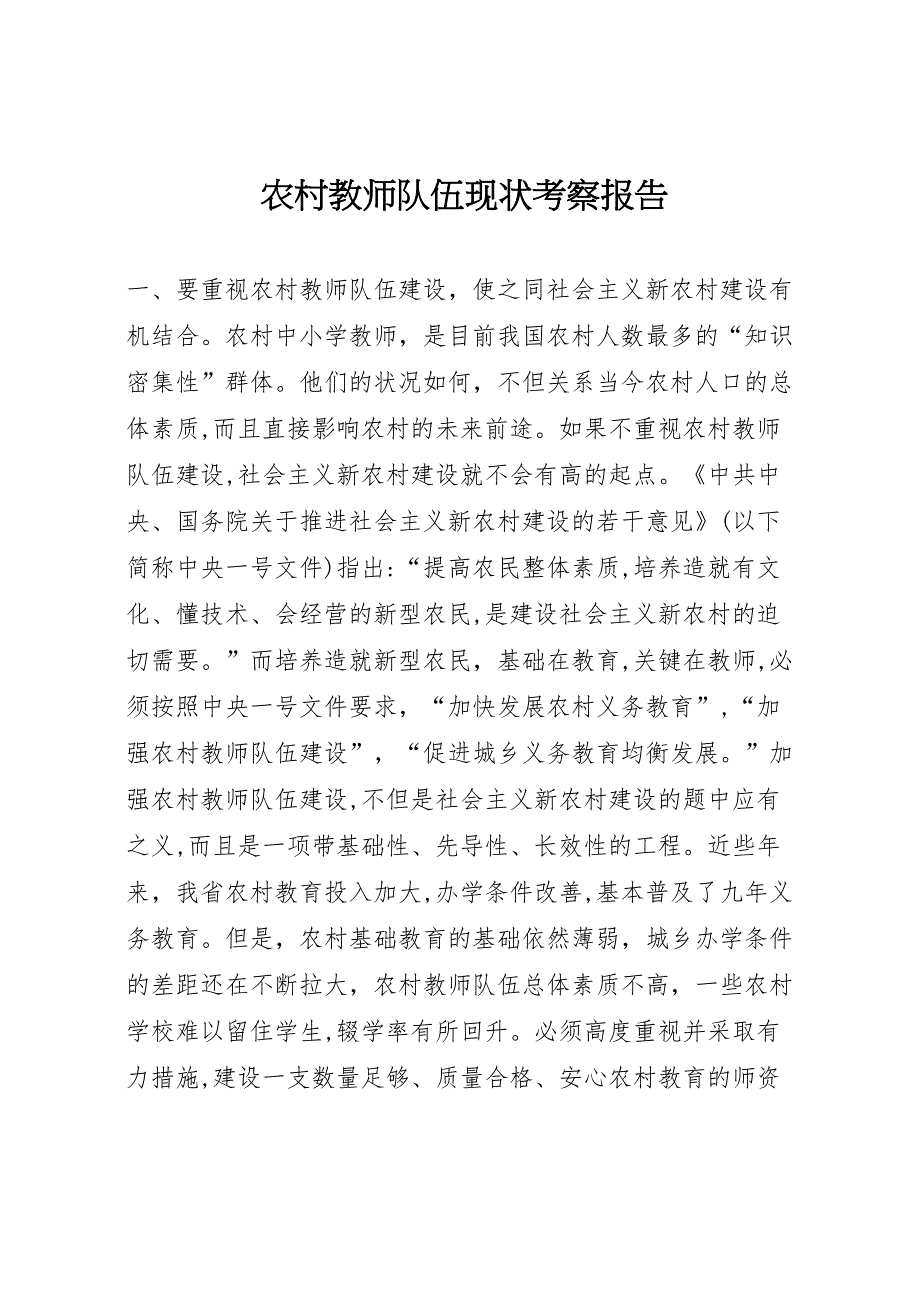 农村教师队伍现状考察报告
一、要重视农村教师队伍建设，使之同社会主义新农村建设有
机结合。农村中小学教师，是目前我国农村人数最多的“知识
密集性”群体。他们的状况如何，不但关系当今农村人口的总
体素质,而且直接影响农村的未来前途。如果不重视农村教师
队伍建设,社会主义新农村建设就不会有高的起点。《中共中
央、国务院关于推进社会主义新农村建设的若干意见》(以下
简称中央一号文件)指出:“提高农民整体素质,培养造就有文
化、懂技术、会经营的新型农民,是建设社会主义新农村的迫
切需要。”而培养造就新型农民，基础在教育,关键在教师,必
须按照中央一号文件要求，“加快发展农村义务教育”,“加
强农村教师队伍建设”，“促进城乡义务教育均衡发展。”加
强农村教师队伍建设,不但是社会主义新农村建设的题中应有
之义,而且是一项带基础性、先导性、长效性的工程。近些年
来，我省农村教育投入加大,办学条件改善,基本普及了九年义
务教育。但是，农村基础教育的基础依然薄弱，城乡办学条件
的差距还在不断拉大，农村教师队伍总体素质不高，一些农村
学校难以留住学生,辍学率有所回升。必须高度重视并采取有
力措施,建设一支数量足够、质量合格、安心农村教育的师资